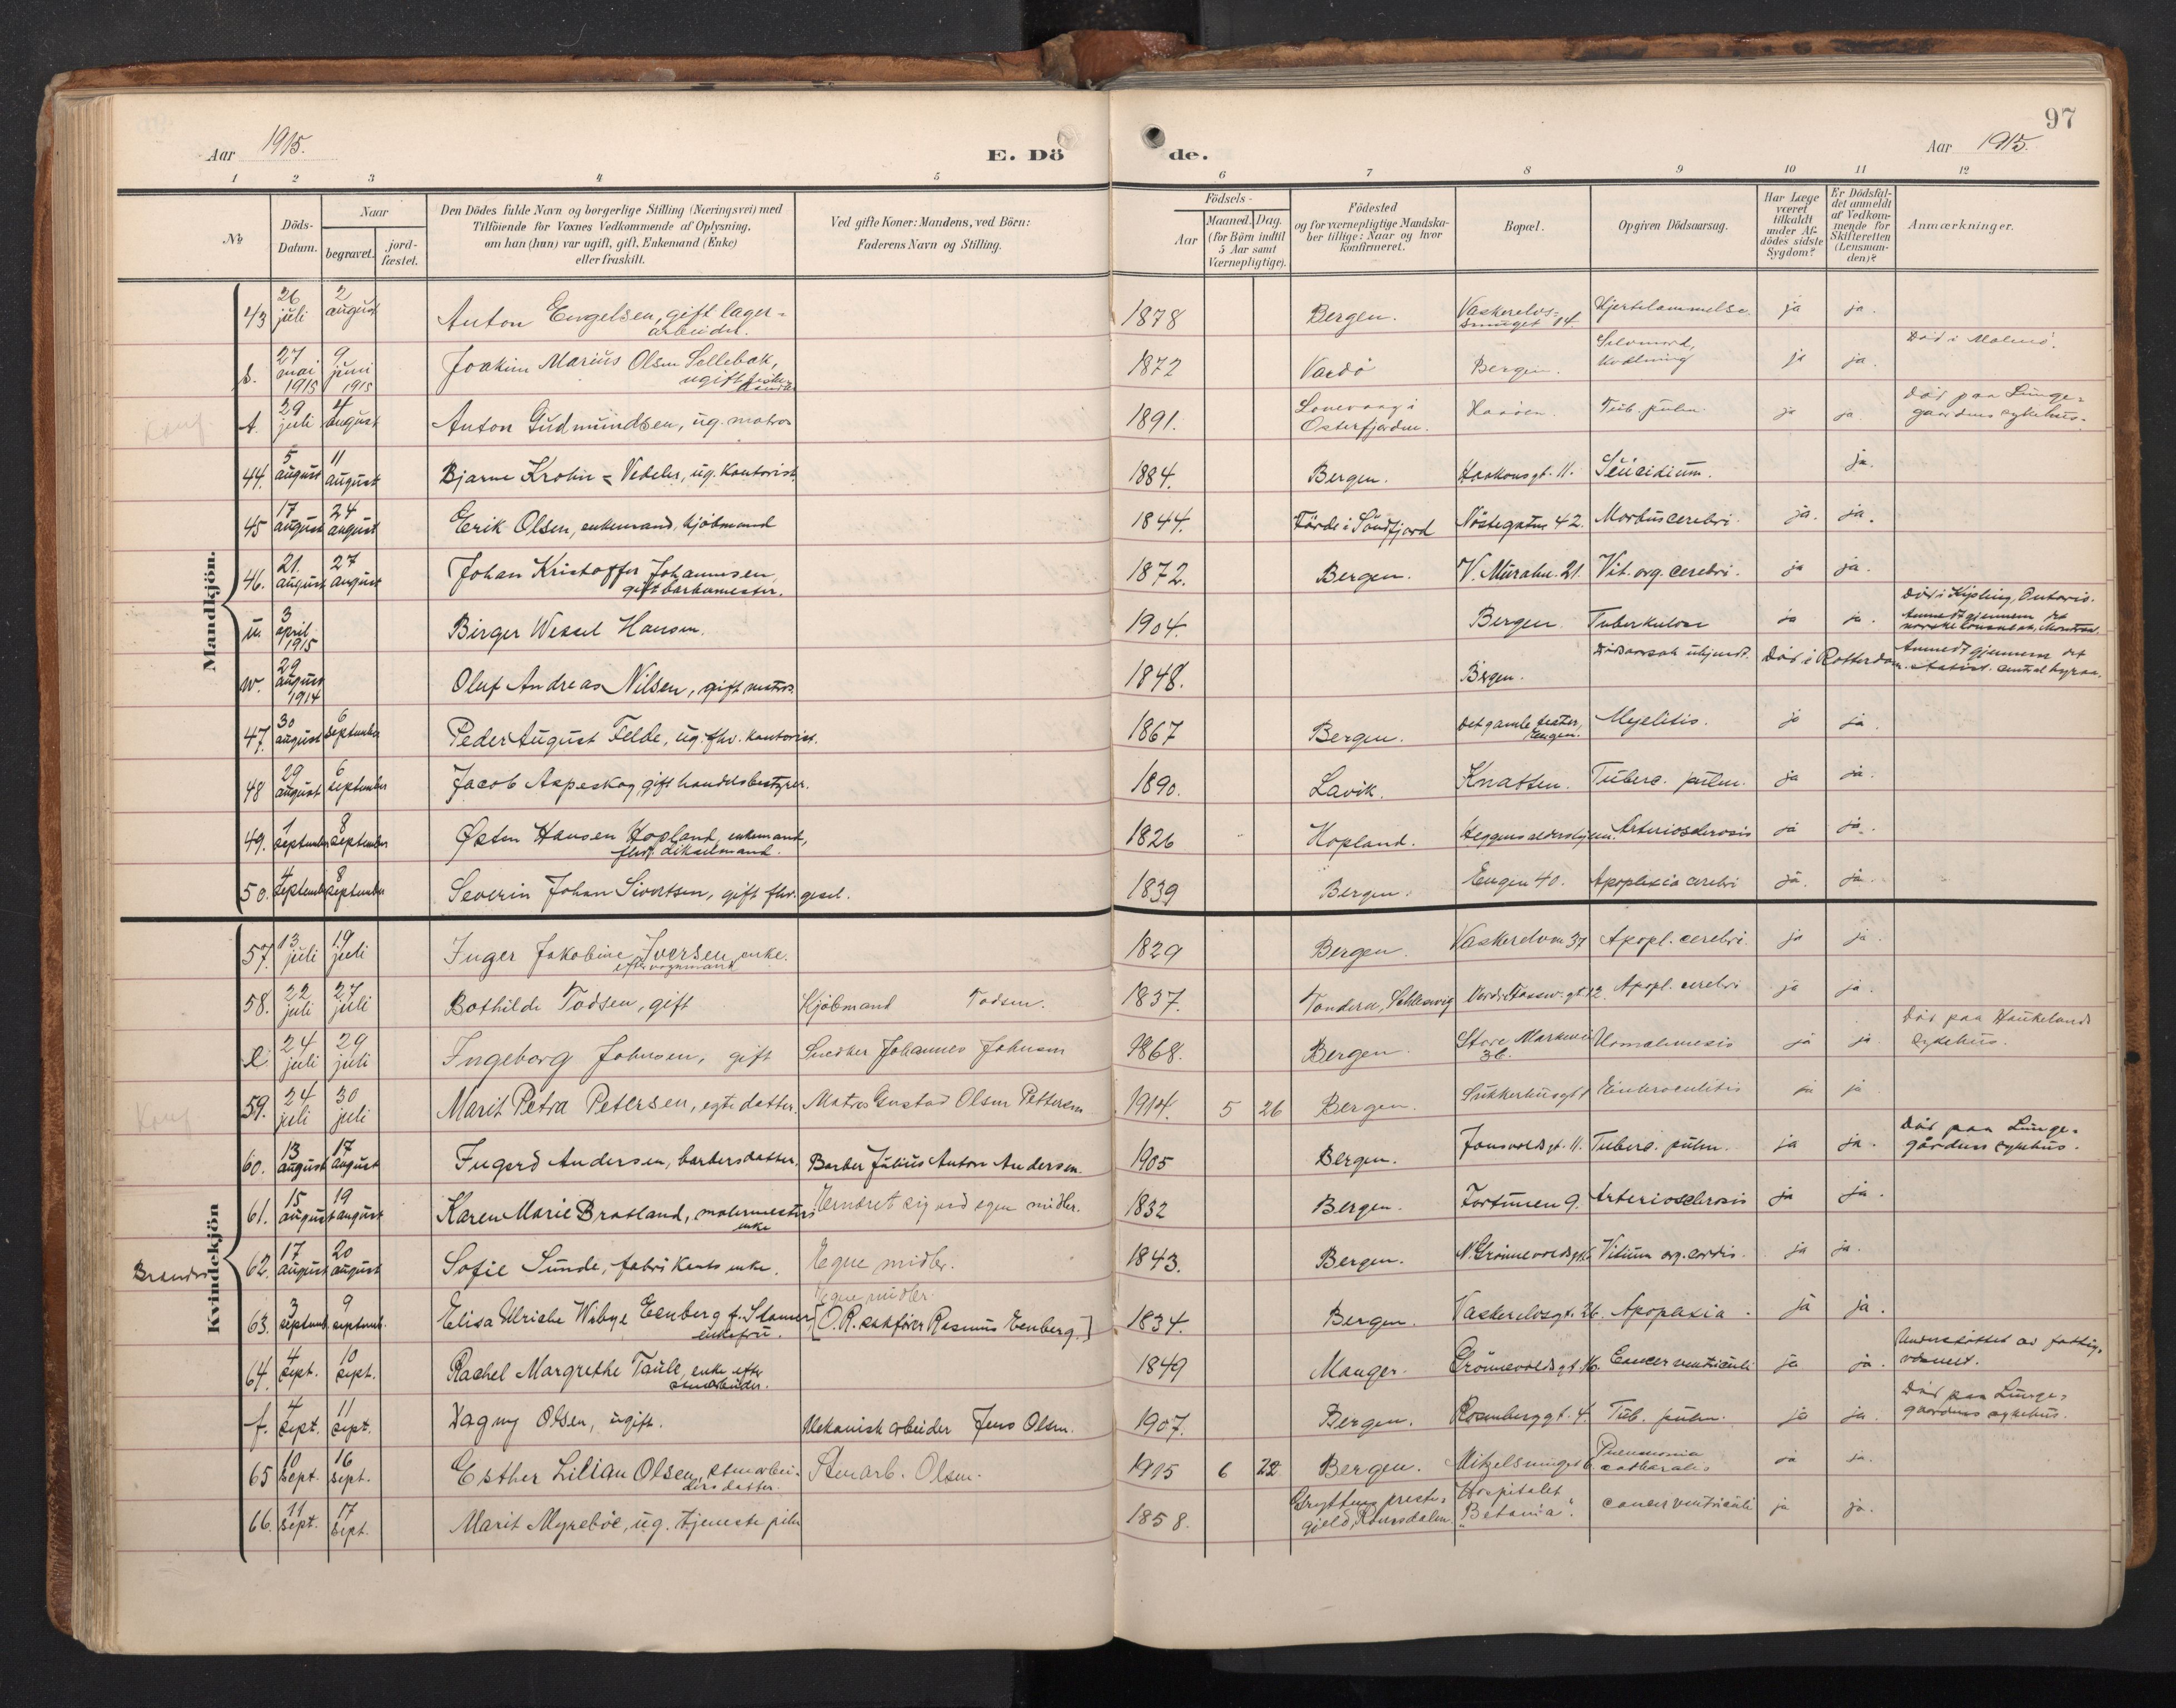 97
Aar 1915.
E. Dö
de.
Aar 1915.
1 2 3 4 5 6 7 8 9 10 11 12
№
Döds-
Datum.
Naar
begravet.
jord-
fæstet.
Den Dödes fulde Navn og borgerlige Stilling (Næringsvei) med
Tilföiende for Voxnes Vedkommende af Oplysning,
om han (hun) var ugift, gift, Enkemand (Enke)
eller fraskilt.
Ved gifte Koner: Mandens, ved Börn:
Faderens Navn og Stilling.
Födsels-
Aar
Maaned. Dag.
(for Börn indtil
5 Aar samt
Værnepligtige).
Födested
og for værnepligtige Mandska-
ber tillige: Naar og hvor
konfirmeret.
Bopæl.
Opgiven Dödsaarsag.
Har Læge
været
tilkaldt
under Af-
dödes sidste
Sygdom?
Er Dödsfal-
det anmeldt
af Vedkom-
mende for
Skifteretten
(Lensman-
den)?
Anmærkninger.
Mandkjön.
43 26 juli 2 august Anton Engelsen, gift lager-
arbeider. 1878 Bergen. 14 Hjertelammelse ja ja.
s. 27 mai 1915 9 juni 1915 Joakim Marius Olsen Sellebak,
ugift 1872 Vardö Bergen. Selvmord, ja ja. Död i Malmö.
t. 29 juli 4 august Anton Gudmundsen, ug. matros 1891. i
Osterfjorden. Tub. pulm. ja ja Död paa Lunge-
gaardens sykehus.
44. 5 august 11 august Bjarne Krohn = Vedeler, ug. Kontorist. 1884. Bergen. Haakonsgt. 11. Suicidium. ja.
45 17 august 24 august Erik Olsen, enkemand, kjöbmand 1844. Förde i Söndfjord Nöstegaten 42. Morbus cerebri. ja. ja.
46. 21. august 27 august Johan Kristoffer Johannesen,
gift barbermester. 1872. Bergen. V. Muralm. 21. Vit. org. cerebri. ja ja.
u. 3 april 1915 Birger Wessel Hansen. 1904. Bergen. Tuberkulose ja ja. Död i Kipling, Ontario.
Anmeldt gjennem det
norske konsulat, Montreal.
w. 29 august 1914 Oluf Andreas Nilsen, gift matros. 1848. Bergen. Dödsaarsak ukjendt. Död i Rotterdam. Anmeldt gjennem det
statist. centralbyraa.
47. 30 august 6 september Peder August Felde, ug. fhv. kontorist. 1867 Bergen. Det gamle teater,
Engen. Myelitis. ja ja.
48 29 august 6 september Jacob Aspeskog, gift handelsbestyrer. 1890. Lavik. Knatten. Tuberc. pulm. ja ja.
49. 1 september 8 september Østen Hansen Hopland, enkemand,
1826 Hopland. Heggens aldershjem. Arteriosclerosis ja ja.
50. 4 september 8 september Severin Johan Sivertsen, gift fhv. gesel. 1839 Bergen. Engen 40. Apoplexia cerebri ja. ja.
Kvindekjön
57. 13 juli 19 juli Inger Jakobine Iversen, enke
efter vognmand 1829 Bergen. Vaskerelven 37 Apopl. cerebri. ja ja.
58. 22 juli 27 juli Bothilde Todsen, gift Kjöbmand Todsen. 1837. Tondern, Schleswig Apopl. cerebri ja ja.
e 24 juli 29 juli Ingeborg Johnsen, gift Snedker Johannes Johnsen 1868. Bergen. Store Markevei
36. ja ja. Död paa Haukelands
sykehus.
Konf 59. 24 juli 30 juli Marit Petra Petersen, egte datter. Matros Gustav Olsen Pettersen 1914. 5 26 Bergen. Sukkerhusgt. Enterocolitis ja ja
60. 13 august 17 august Ingerd Andersen, barbersdatter. Barber Julius Anton Andersen. 1905 Bergen. Jonsvoldsgt. 11. Tuberc. pulm. ja ja. Död paa Lunge-
gårdens sykehus.
61. 15 august 19 august Karen Marie Bratland, malermesters
enke Ernæret sig ved egne midler. 1832 Bergen. Fortunen 9. Arteriosclerosis ja ja.
62. 17 august 20 august Sofie Sunde, fabrikants enke. Egne midler. 1843. Bergen. Vitium org. cordis. ja ja.
63. 3 septemb. 9 septemb. Elisa Ulrikke Wibye Eenberg f. Stamer,
enkefru. Egne midler.
[O.R. sakförer Rasmus Eenberg.] 1834. Bergen. Vaskerelvsgt. 26. Apoplexia. ja ja.
64. 4 sept. 10 sept. Rachel Margrethe Taule, enke efter
stenarbeider. 1849 Manger. Grönnevoldsgt. 16. Cancer ventriculi ja ja. Understöttet av fattig-
væsenet.
f. 4 sept. 11 sept. Dagny Olsen, ugift. Mekanisk arbeider Jens Olsen. 1907. Bergen. Rosenberggt. 4. Tub. pulm. ja ja. Död paa Lunge-
gaardens sykehus.
65 10 sept. 16 sept. Esther Lilian Olsen, stenarbei-
ders datter. Stenarb. Olsen. 1915 6 22 Bergen. Pneumonia
catharalis ja ja.
66. 11 sept. 17 sept. Marit Myrebøe, ug. tjenestepike 1858. Grytten preste-
gjeld, Romsdalen. Hospitalet
"Betania". cancer ventriculi ja ja.